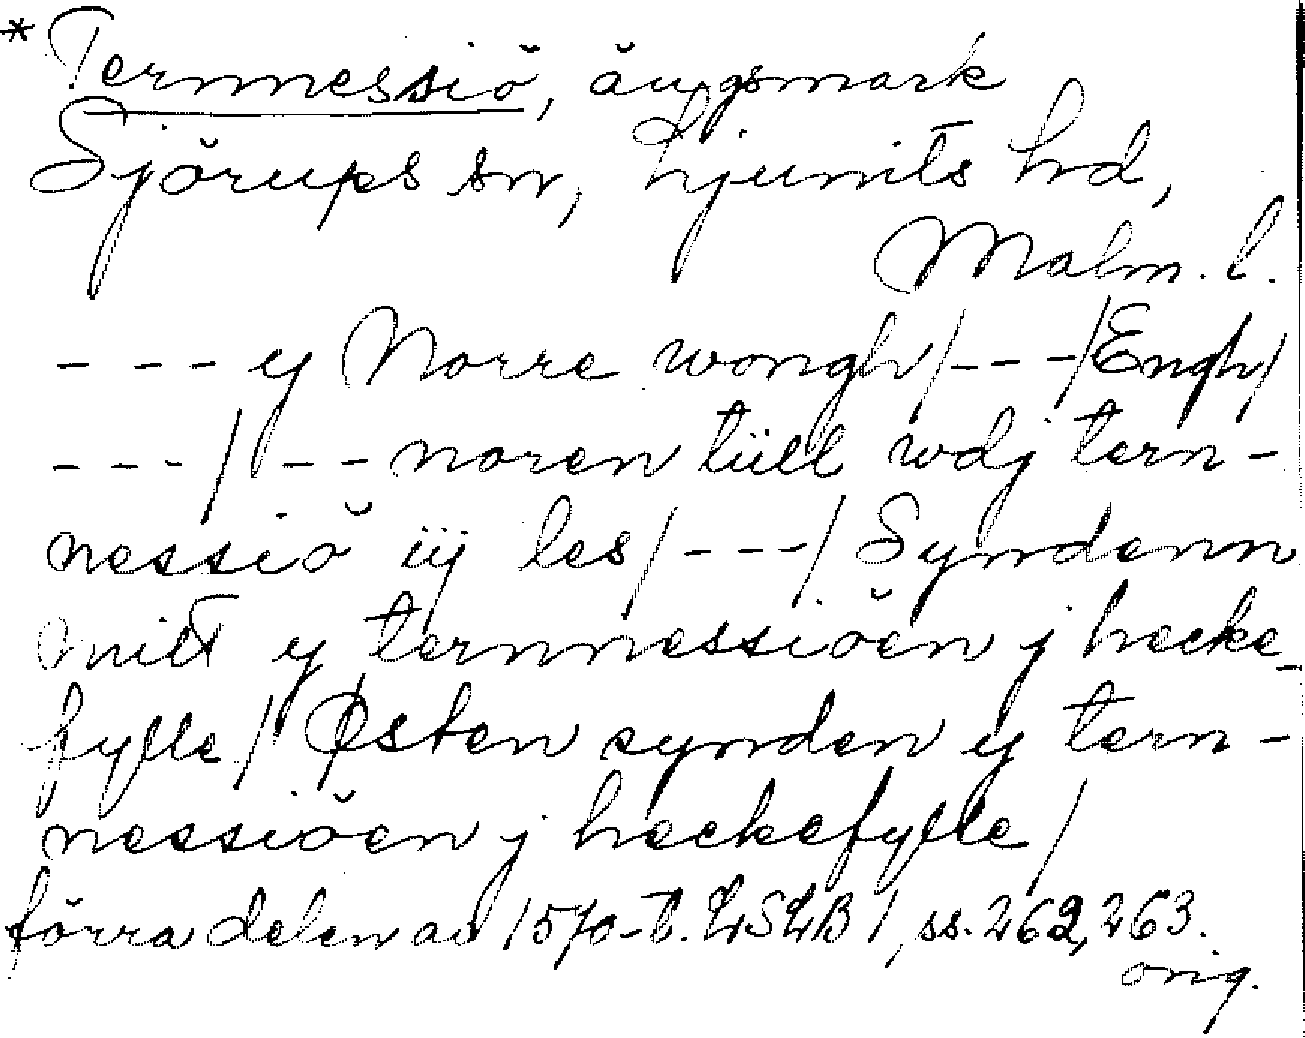 * Ternnessiö, ängsmark
Sjörups sn, Ljunits hd,
Malm. l.
--- y Norre wongh/---/Engh/
---/ --- noren tüll wdj tern-
nessiö iij les/---/Syndenn
mitt y ternnessiöen j hecke-
fylle/ Østen synden y tern-
nessiöen j heckefylle/
förra delen av 1570-t. LSLB 1, ss. 262, 263.
orig.